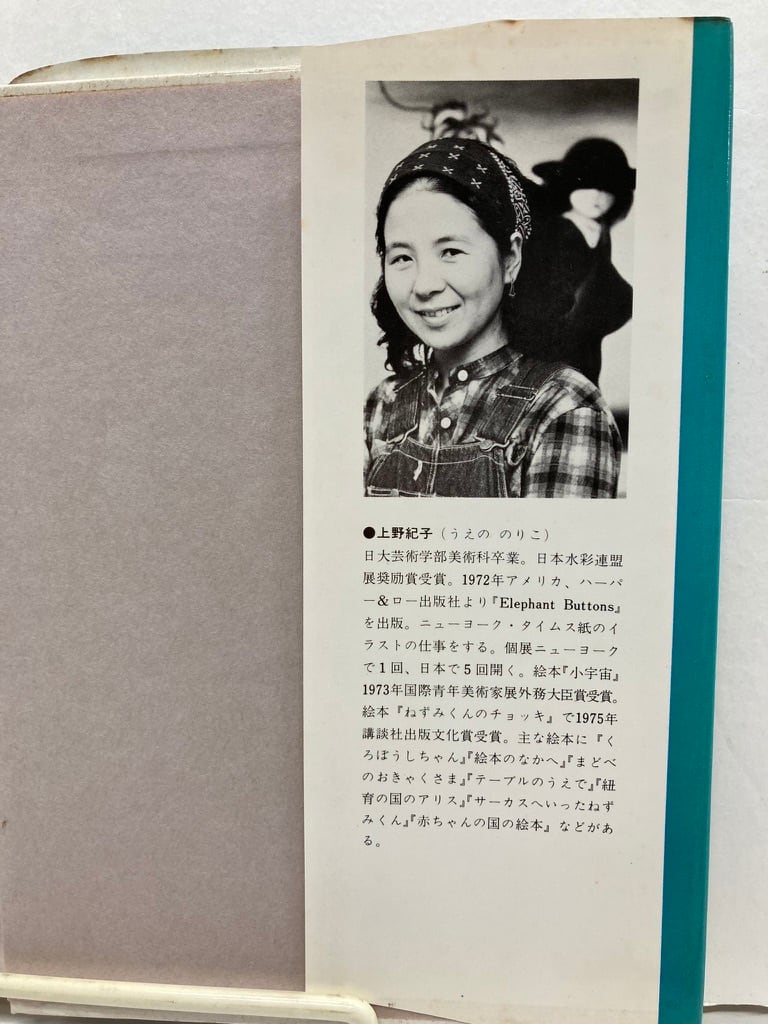 ●上野紀子（うえの のりこ）
日大芸術学部美術科卒業。日本水彩連盟
展奨励賞受賞。1972年アメリカ、ハーパ
ー＆ロー出版社より『Elephant Buttons』
を出版。ニューヨーク・タイムス紙のイ
ラストの仕事をする。個展ニューヨーク
で1回、日本で5回開く。絵本『小宇宙』
1973年国際青年美術家展外務大臣賞受賞。
絵本『ねずみくんのチョッキ』で1975年
講談社出版文化賞受賞。主な絵本に『く
ろぼうしちゃん』『絵本のなかへ』『まどべ
のおきゃくさま』『テーブルのうえで』『紐
育の国のアリス』『サーカスへいったねず
みくん』『赤ちゃんの国の絵本』などがあ
る。